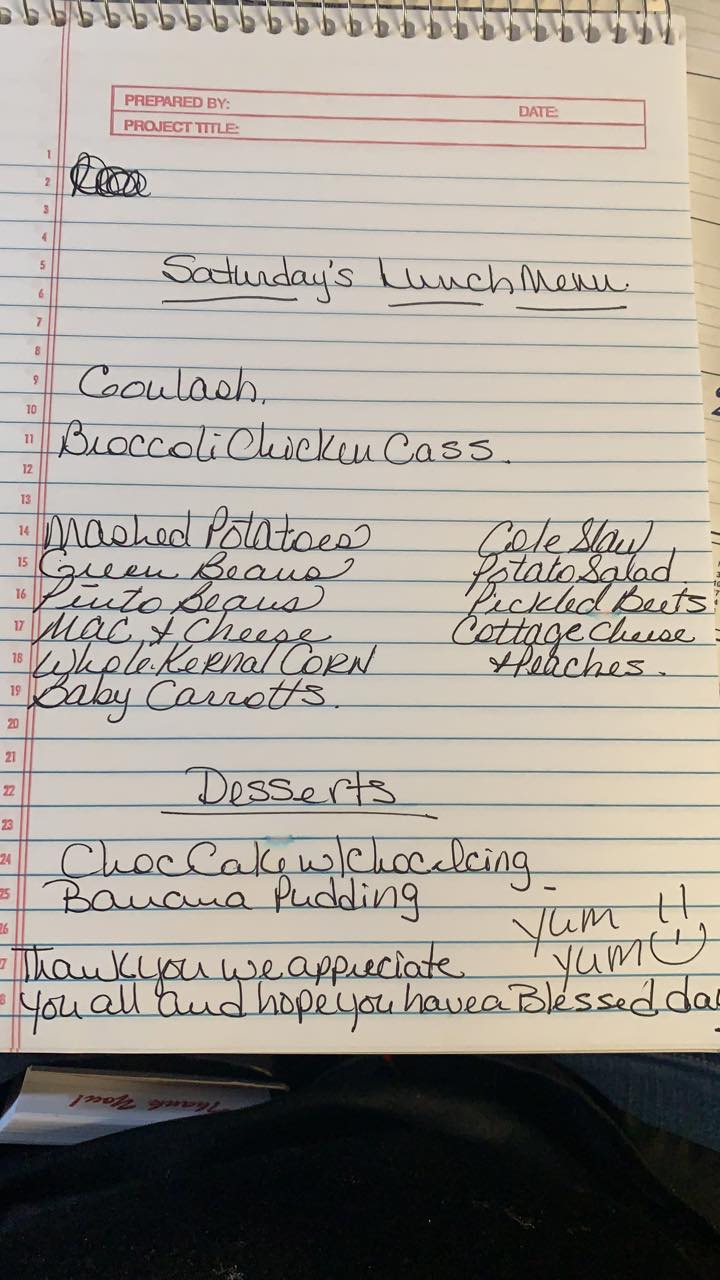 PREPARED BY: DATE:
PROJECT TITLE:
Saturday's Lunch Menu
Goulash.
Broccoli Chicken Cass.
Mashed Potatoes
Green Beans
Pinto Beans
Mac & Cheese
Whole Kernal Corn
Baby Carrotts.
Cole Slaw
Potato Salad
Pickled Beets
Cottage Cheese
& Peaches.
Desserts
Choc Cake w/ choc Icing
Banana Pudding
Yum !!
Yum
Thank you we appreciate
you all and hope you have a Blessed day
Thank You!
1
2
3
4
5
6
7
8
9
10
11
12
13
14
15
16
17
18
19
20
21
22
23
24
25